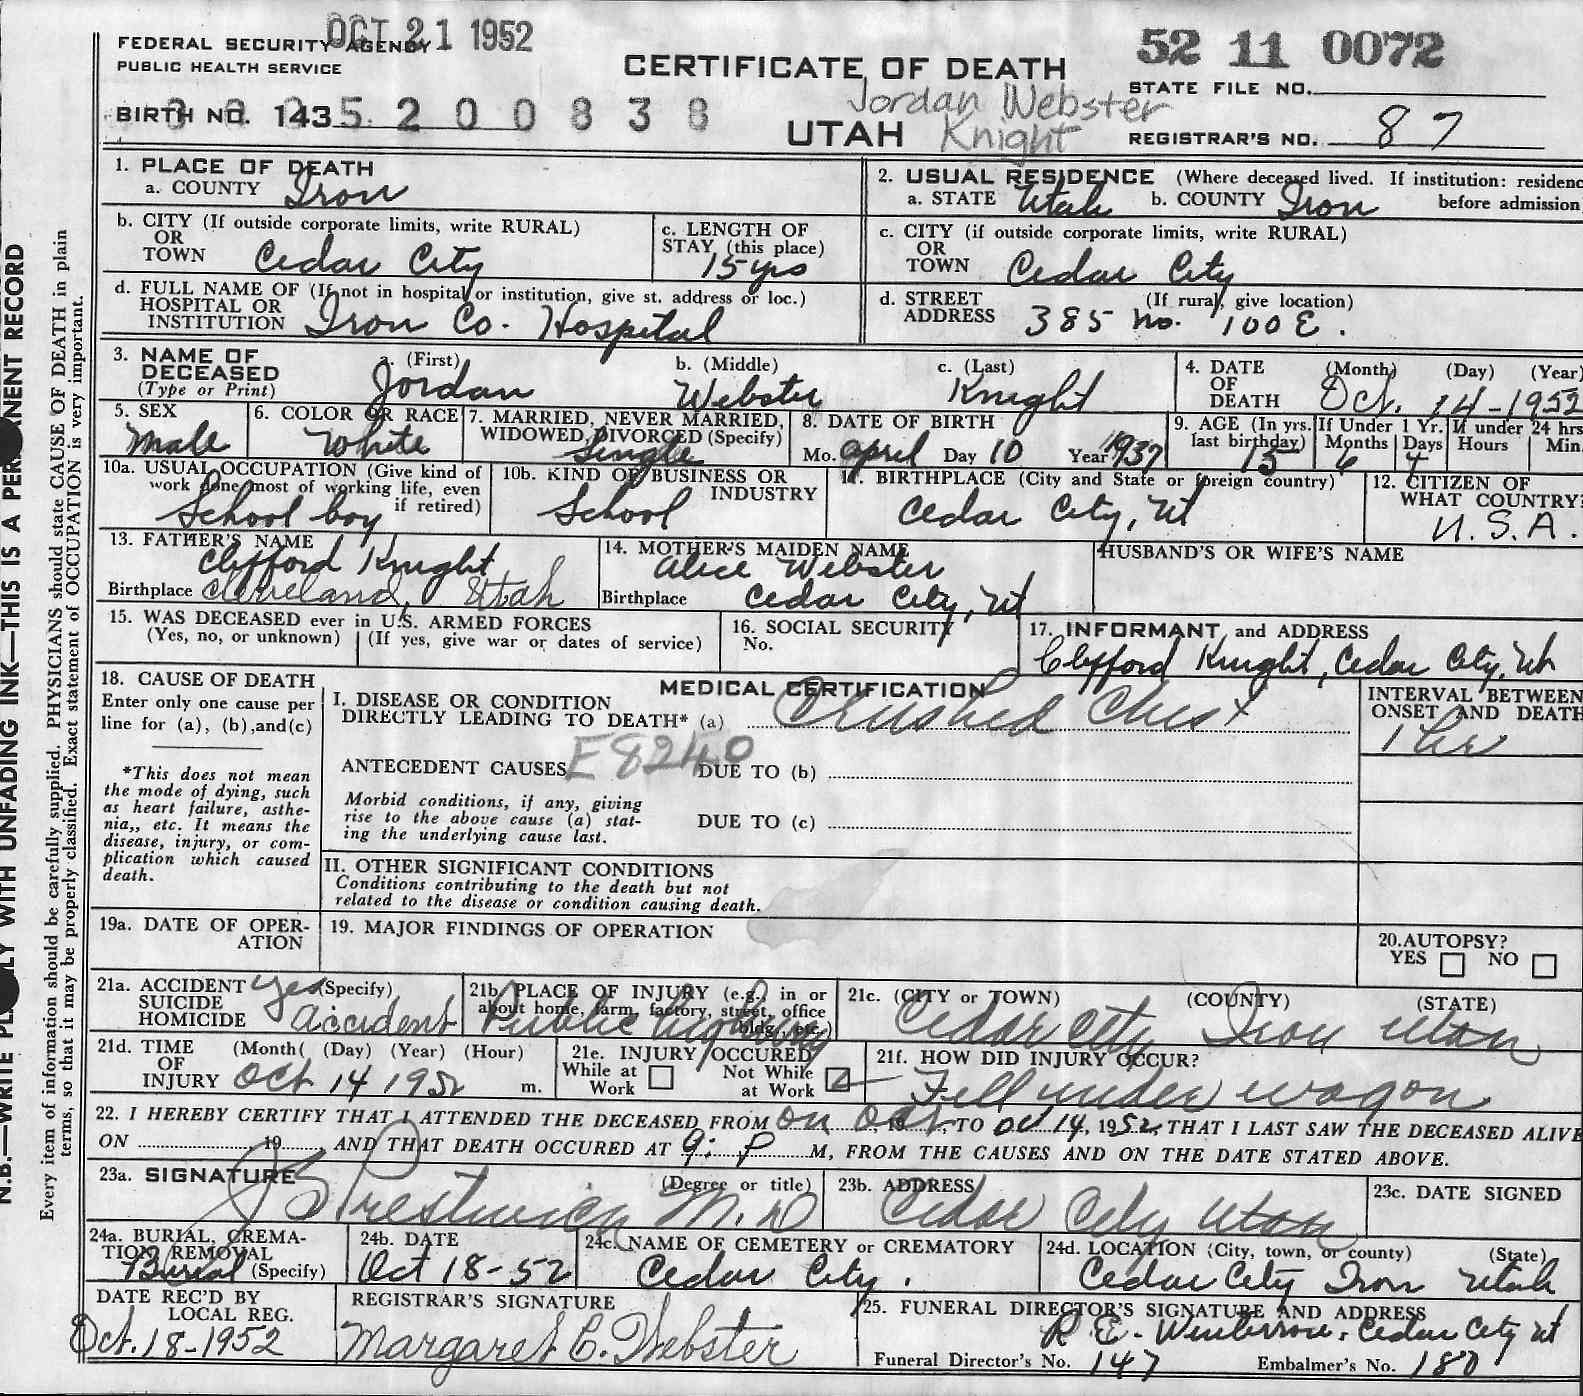 OCT 21 1952
FEDERAL SECURITY AGENCY
PUBLIC HEALTH SERVICE
CERTIFICATE OF DEATH
UTAH
Jordan Webster
Knight
52 11 0072
STATE FILE NO.
BIRTH NO. 143 5 2 0 0 8 3 8
REGISTRAR'S NO. 87
N.B.—WRITE PLAINLY WITH UNFADING INK—THIS IS A PERMANENT RECORD
Every item of information should be carefully supplied. PHYSICIANS should state CAUSE OF DEATH in plain
terms, so that it may be properly classified. Exact statement of OCCUPATION is very important.
1. PLACE OF DEATH
a. COUNTY Iron
2. USUAL RESIDENCE (Where deceased lived. If institution: residenc
a. STATE Utah b. COUNTY Iron before admission
b. CITY (If outside corporate limits, write RURAL)
OR
TOWN Cedar City
c. LENGTH OF
STAY (this place)
15 yrs
c. CITY (if outside corporate limits, write RURAL)
OR
TOWN Cedar City
d. FULL NAME OF (If not in hospital or institution, give st. address or loc.)
HOSPITAL OR
INSTITUTION Iron Co. Hospital
d. STREET (If rural, give location)
ADDRESS 385 No. 100 E.
3. NAME OF
DECEASED
(Type or Print)
a. (First) b. (Middle) c. (Last)
Jordan Webster Knight
4. DATE
OF
DEATH
(Month) (Day) (Year)
Oct. 14-1952
5. SEX
Male
6. COLOR OR RACE
White
7. MARRIED, NEVER MARRIED,
WIDOWED, DIVORCED (Specify)
Single
8. DATE OF BIRTH
Mo. April Day 10 Year 1937
9. AGE (In yrs.
last birthday)
15
If Under 1 Yr.
Months Days
6 4
If under 24 hrs
Hours Min.
10a. USUAL OCCUPATION (Give kind of
work done most of working life, even
if retired)
School boy
10b. KIND OF BUSINESS OR
INDUSTRY
School
11. BIRTHPLACE (City and State or foreign country)
Cedar City, Ut
12. CITIZEN OF
WHAT COUNTRY?
U.S.A.
13. FATHER'S NAME
Clifford Knight
Birthplace Cleveland, Utah
14. MOTHER'S MAIDEN NAME
Alice Webster
Birthplace Cedar City, Ut
HUSBAND'S OR WIFE'S NAME
15. WAS DECEASED ever in U.S. ARMED FORCES
(Yes, no, or unknown) (If yes, give war or dates of service)
16. SOCIAL SECURITY
No.
17. INFORMANT and ADDRESS
Clifford Knight, Cedar City, Ut
18. CAUSE OF DEATH
Enter only one cause per
line for (a), (b),and(c)
*This does not mean
the mode of dying, such
as heart failure, asthe-
nia,, etc. It means the
disease, injury, or com-
plication which caused
death.
MEDICAL CERTIFICATION
I. DISEASE OR CONDITION
DIRECTLY LEADING TO DEATH* (a) Crushed Chest
INTERVAL BETWEEN
ONSET AND DEATH
1 hr
ANTECEDENT CAUSES E8240 DUE TO (b)
Morbid conditions, if any, giving
rise to the above cause (a) stat-
ing the underlying cause last.
DUE TO (c)
II. OTHER SIGNIFICANT CONDITIONS
Conditions contributing to the death but not
related to the disease or condition causing death.
19a. DATE OF OPER-
ATION
19. MAJOR FINDINGS OF OPERATION
20.AUTOPSY?
YES NO
21a. ACCIDENT yes (Specify)
SUICIDE
HOMICIDE accident
21b. PLACE OF INJURY (e.g., in or
about home, farm, factory, street, office
bldg., etc.)
Public highway
21c. (CITY or TOWN) (COUNTY) (STATE)
Cedar City Iron Utah
21d. TIME
OF
INJURY
(Month( (Day) (Year) (Hour)
Oct 14 1952 m.
21e. INJURY OCCURED
While at Work
Not While at Work
21f. HOW DID INJURY OCCUR?
Fell under wagon
22. I HEREBY CERTIFY THAT I ATTENDED THE DECEASED FROM on Oct, 19, TO Oct 14, 1952, THAT I LAST SAW THE DECEASED ALIVE
ON 19 AND THAT DEATH OCCURED AT 9: P M, FROM THE CAUSES AND ON THE DATE STATED ABOVE.
23a. SIGNATURE (Degree or title)
Prestwich M.D
23b. ADDRESS
Cedar City Utah
23c. DATE SIGNED
24a. BURIAL, CREMA-
TION, REMOVAL
Burial (Specify)
24b. DATE
Oct 18-52
24c. NAME OF CEMETERY or CREMATORY
Cedar City.
24d. LOCATION (City, town, or county) (State)
Cedar City Iron Utah
DATE REC'D BY
LOCAL REG.
Oct. 18-1952
REGISTRAR'S SIGNATURE
Margaret C. Webster
25. FUNERAL DIRECTOR'S SIGNATURE AND ADDRESS
R.E. Winterrose. Cedar City Ut
Funeral Director's No. 147 Embalmer's No. 180